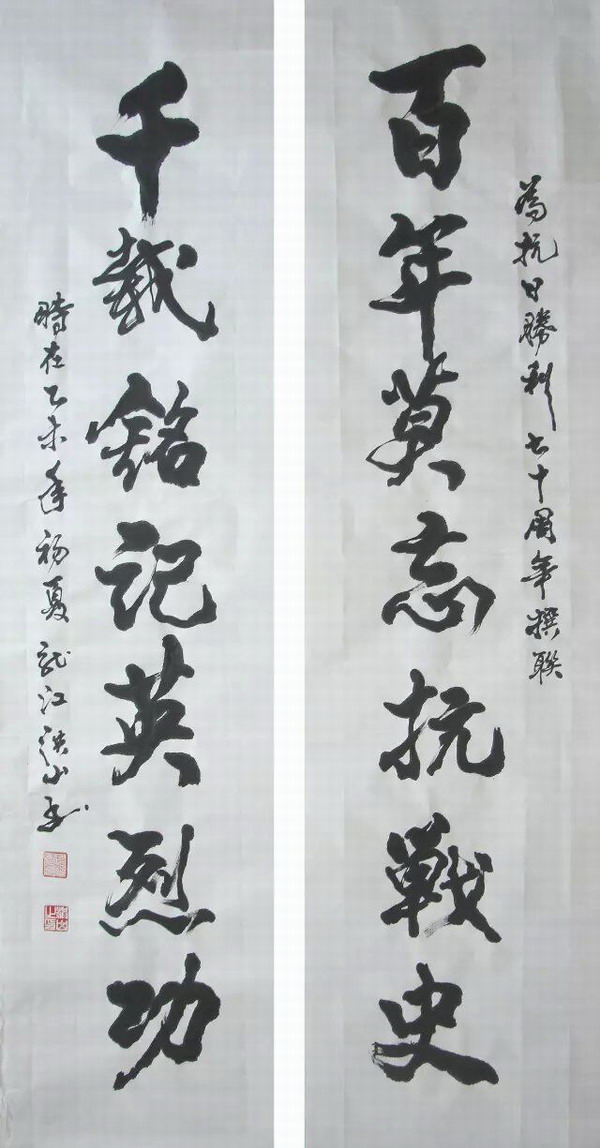 為抗日勝利七十周年撰聯
百年莫忘抗戰史
千載銘記英烈功
時在乙未年初夏龍江洪山書